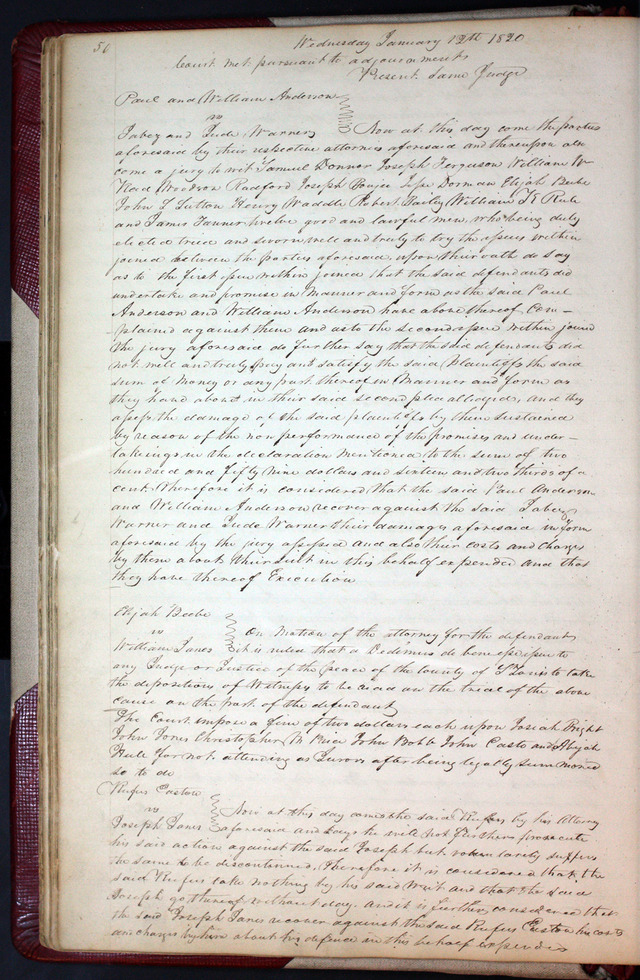 56 Wednesday January 12th 1820
Court met pursuant to adjournment
Present same Judge
Paul and William Anderson
vs
Jabez and Jude Warner Now at this day come the parties
aforesaid by their respective attornies aforesaid and thereupon also
come a jury to wit Samuel Donner Joseph Ferguson William W
Woodson Radford Joseph Jesse Dorman Elijah Beebe
John L Sutton Henry Waddle Robert Bailey William K Rule
and James Tanner twelve good and lawful men, who being duly
elected tried and sworn well and truly to try the issues within
joined between the parties aforesaid upon their oath do say
as to the first issue within joined that the said defendants did
undertake and promise in manner and form as the said Paul
Anderson and William Anderson have above thereof com-
plained against them and as to the second issue within joined
the jury aforesaid do further say that the said defendants did
not well and truly pay and satisfy the said Plaintiffs the said
sum of money or any part thereof in manner and form as
they have above in their said second plea alledged, and they
assess the damage of the said plaintiffs by them sustained
by reason of the non performance of the promises and under-
takings in the declaration mentioned to the sum of two
hundred and fifty nine dollars and sixteen and two thirds of a
cent. Therefore it is considered that the said Paul Anderson
and William Anderson recover against the said Jabez
Warner and Jude Warner their damages aforesaid in form
aforesaid by the jury assessed and also their costs and charges
by them about their suit in this behalf expended and that
they have thereof Execution
Elijah Beebe
vs On motion of the attorney for the defendant
William Janes it is ruled that a Dedimus de bene esse issue to
any Judge or Justice of the peace of the county of St Louis to take
the depositions of Witnesses to be read on the trial of the above
cause on the part of the defendant
The Court impose a fine of two dollars each upon Josiah Bright
John Jones Christopher M Price John Bobb John Casto and Abijah
Hull for not attending as Jurors after being legally summoned
so to do
Rufus Easton
vs Now at this day comes the said Rufus by his Attorney
Joseph Janes aforesaid and says he will not further prosecute
his said action against the said Joseph but voluntarily suffers
the same to be discontinued. Therefore it is considered that the
said Rufus take nothing by his said writ and that the said
Joseph go thereof without day. and it is further considered that
the said Joseph Janes recover against the said Rufus Easton his costs
and charges by him about his defence in this behalf expended